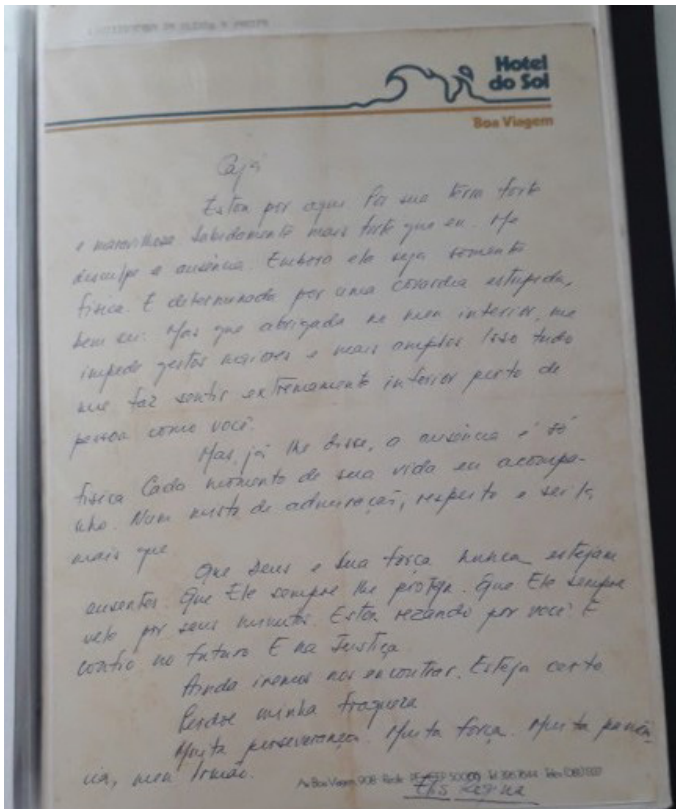 Hotel
do Sol
Boa Viagem
Cajá
Estou por aqui. Por sua terra forte
e maravilhosa. Sabidamente mais forte que eu. Me
desculpe a ausência. Embora ela seja somente
física. E determinada por uma covardia estúpida,
bem sei. Mas que abrigada no meu interior, me
impede gestos maiores e mais amplos. Isso tudo
me faz sentir extremamente inferior perto de
pessoa como você.
Mas, já lhe disse, a ausência é só
física. Cada momento de sua vida eu acompa-
nho. Num misto de admiração, respeito e sei lá
mais que.
Que Deus e sua força nunca estejam
ausentes. Que Ele sempre lhe proteja. Que Ele sempre
vele por seus minutos. Estou rezando por você. E
confio no futuro. E na Justiça.
Ainda iremos nos encontrar. Esteja certo
Perdoe minha fraqueza
Muita perseverança. Muita força. Muita paciên
cia, meu Irmão.
Av. Boa Viagem, 908 - Recife - PE
Elis Regina